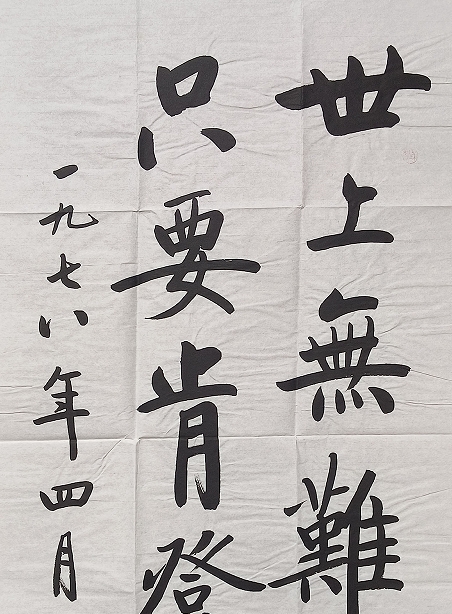 世上無難
只要肯登
一九七八年四月